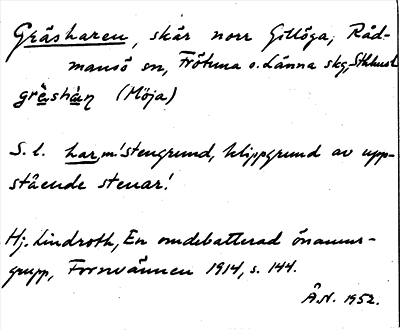 Gräsharen, skär norr Gillöga, Råd-
mansö sn, Frötuna o. Länna skg, Sthlmsl
grèshàn (Möja)
S. l. har, m 'stengrund, klippgrund av upp-
stående stenar!
Hj. Lindroth, En omdebatterad önamns-
grupp, Fornvännen 1914, s. 144.
Å.N. 1952.